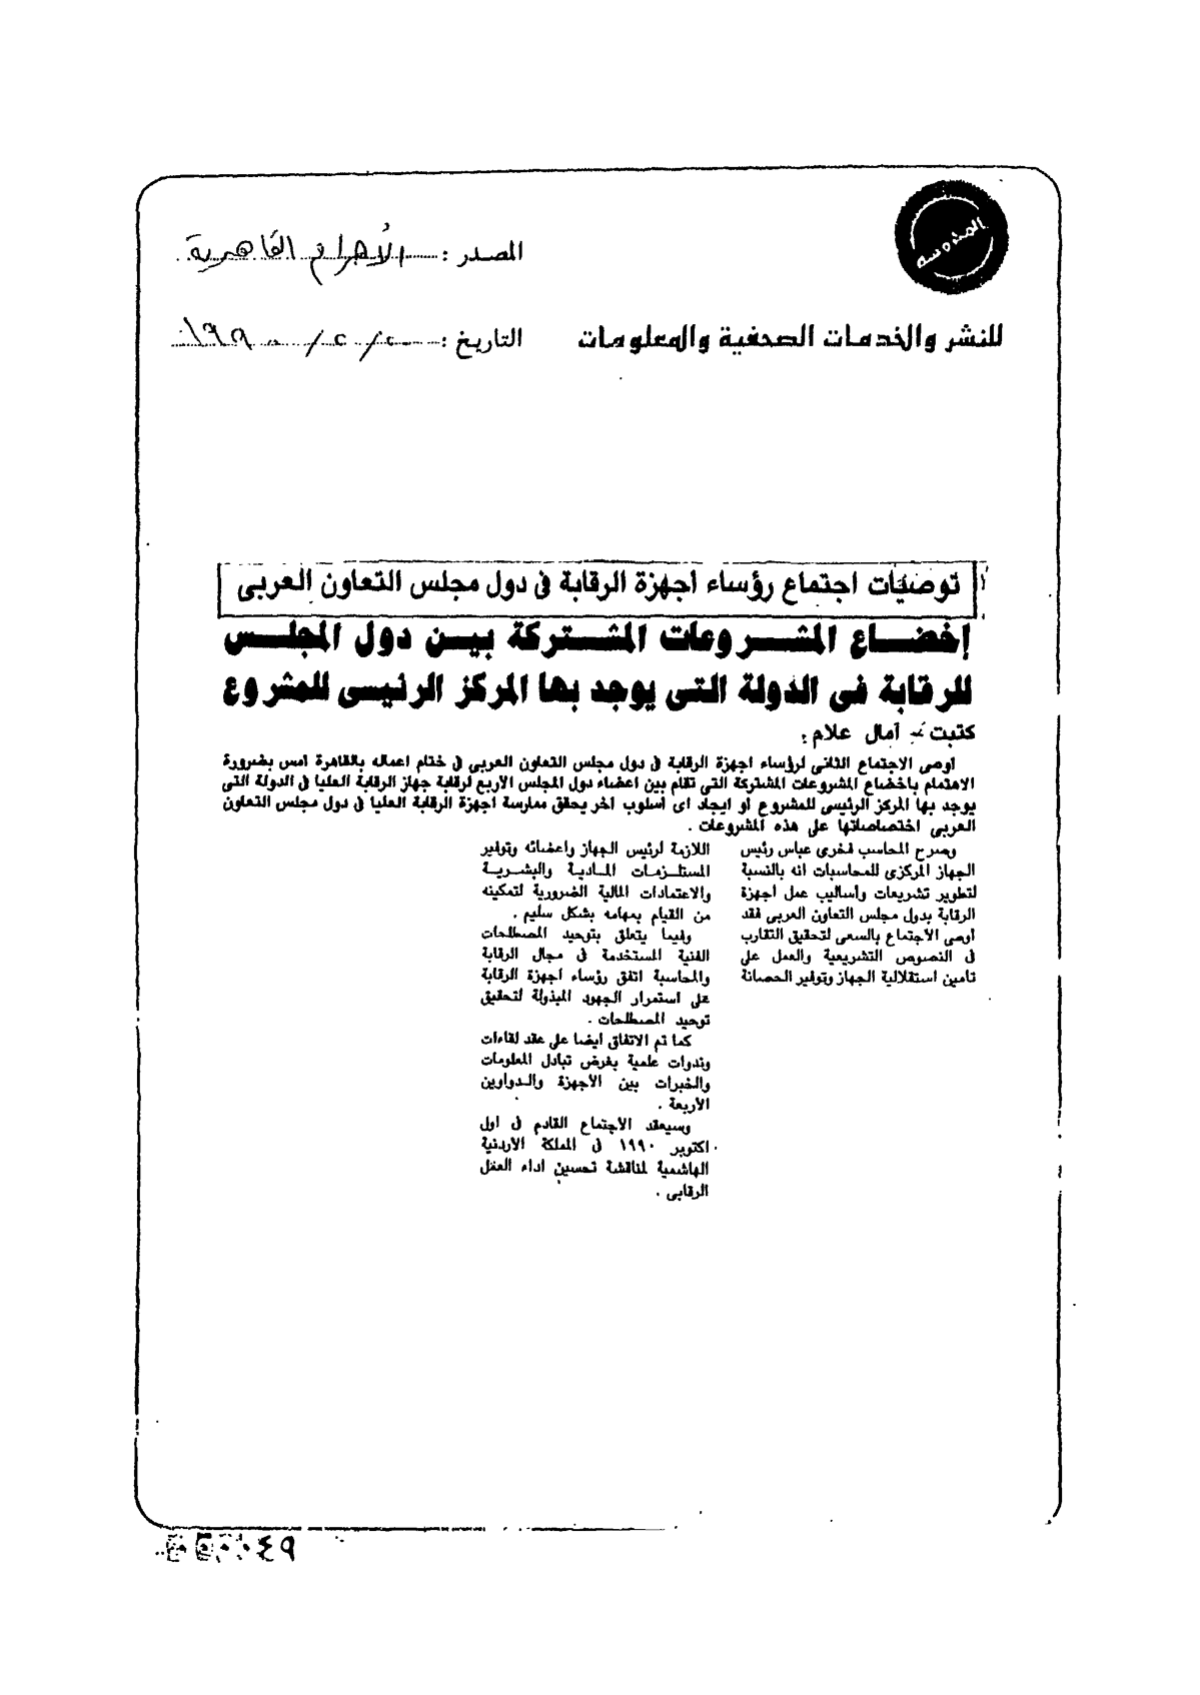 المحروسة
المصدر : الأهرام القاهرية
للنشر والخدمات الصحفية والمعلومات
التاريخ : ٢٠ / ٢ / ١٩٩٠
توصيات اجتماع رؤساء أجهزة الرقابة فى دول مجلس التعاون العربى
إخضاع المشروعات المشتركة بين دول المجلس
للرقابة فى الدولة التى يوجد بها المركز الرئيسى للمشروع
كتبت - آمال علام :
اوصى الاجتماع الثانى لرؤساء اجهزة الرقابة فى دول مجلس التعاون العربى فى ختام اعماله بالقاهرة امس بضرورة
الاهتمام باخضاع المشروعات المشتركة التى تقام بين اعضاء دول المجلس الاربع لرقابة جهاز الرقابة العليا فى الدولة التى
يوجد بها المركز الرئيسى للمشروع او ايجاد اى اسلوب اخر يحقق ممارسة اجهزة الرقابة العليا فى دول مجلس التعاون
العربى اختصاصاتها على هذه المشروعات .
وصرح المحاسب فخرى عباس رئيس
الجهاز المركزى للمحاسبات انه بالنسبة
لتطوير تشريعات وأساليب عمل أجهزة
الرقابة بدول مجلس التعاون العربى فقد
أوصى الاجتماع بالسعى لتحقيق التقارب
فى النصوص التشريعية والعمل على
تامين استقلالية الجهاز وتوفير الحصانة
اللازمة لرئيس الجهاز واعضائه وتوفير
المستلزمات المادية والبشرية
والاعتمادات المالية الضرورية لتمكينه
من القيام بمهامه بشكل سليم .
وفيما يتعلق بتوحيد المصطلحات
الفنية المستخدمة فى مجال الرقابة
والمحاسبة اتفق رؤساء اجهزة الرقابة
على استمرار الجهود المبذولة لتحقيق
توحيد المصطلحات .
كما تم الاتفاق ايضا على عقد لقاءات
وندوات علمية بغرض تبادل المعلومات
والخبرات بين الأجهزة والدواوين
الأربعة .
وسيعقد الاجتماع القادم فى اول
اكتوبر ١٩٩٠ فى المملكة الاردنية
الهاشمية لمناقشة تحسين اداء العمل
الرقابى .